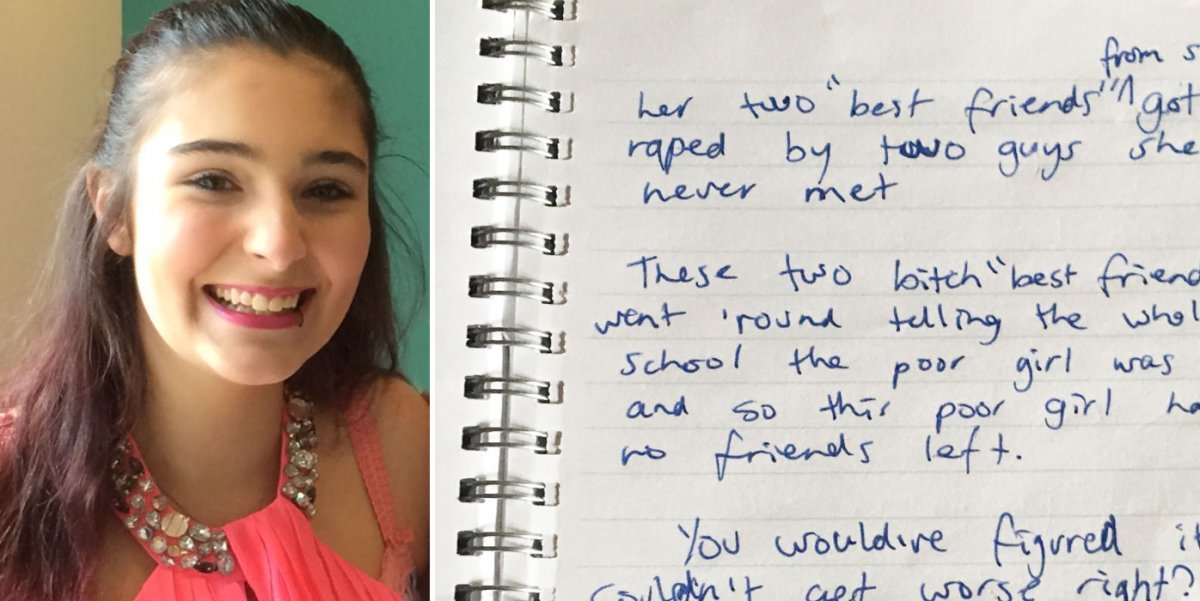 from s
her two "best friends" ^ got
raped by two guys she
never met
These two bitch "best friend
went 'round telling the whol
school the poor girl was
and so this poor girl ha
no friends left.
You wouldive figured it
couldn't get worse right?